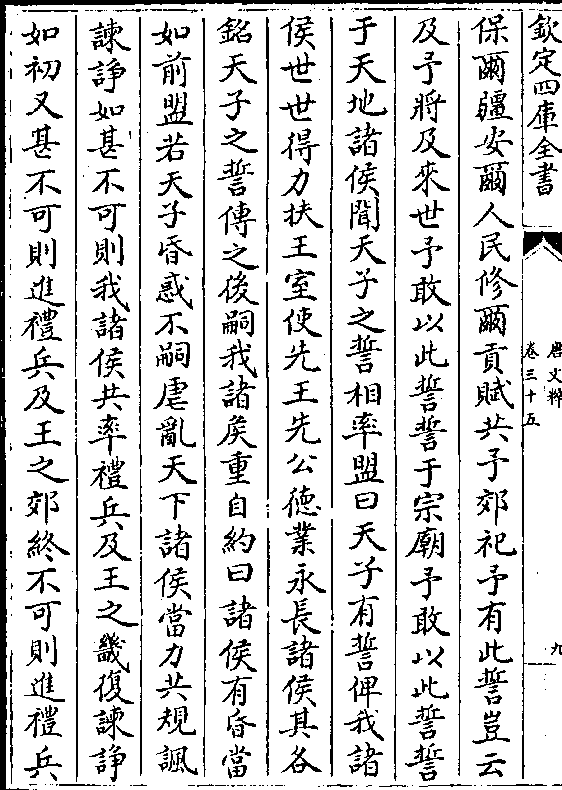 欽定四庫全書
唐文粹
卷三十五
九
保爾疆安爾人民修爾貢賦共予郊祀予有此誓豈云
及予將及來世予敢以此誓誓于宗廟予敢以此誓誓
于天地諸侯聞天子之誓相率盟曰天子有誓俾我諸
侯世世得力扶王室使先王先公徳業永長諸侯其各
銘天子之誓傳之後嗣我諸侯重自約曰諸侯有昏當
如前盟若天子昏惑不嗣虐亂天下諸侯當力共規諷
諫諍如甚不可則我諸侯共率禮兵及王之畿復諫諍
如初又甚不可則進禮兵及王之郊終不可則進禮兵